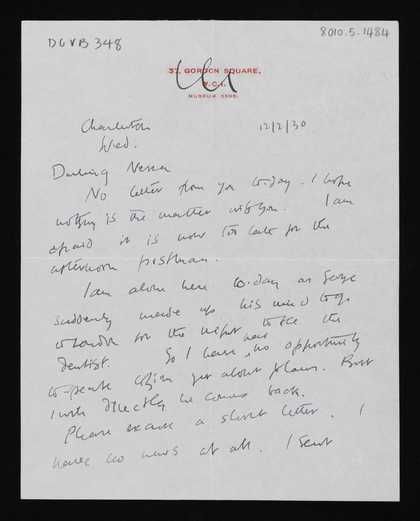 DGVB 348
8010.5.1484
37, GORDON SQUARE,
W.C.1.
MUSEUM
Charleston
Wed.
12/2/30
Darling Nessa
No letter from you to-day. I hope
nothing is the matter with you. I am
afraid it is now too late for the
afternoon postman.
I am alone here to-day as George
suddenly made up his mind to go
to London for the night to see the
dentist. So I have had no opportunity
to speak to him yet about plans. But
I will directly he comes back.
Please excuse a short letter. I
have no news at all. I sent